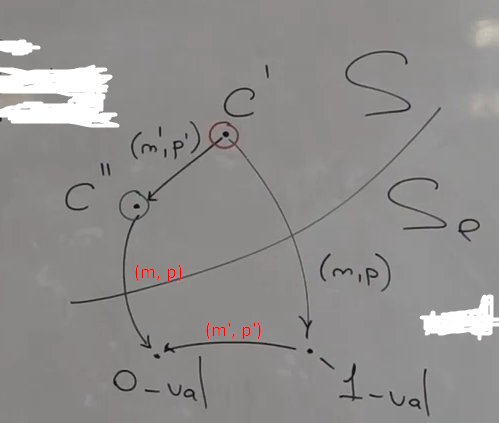 C'
S
(m', p')
C"
S_e
(m, p)
(m, p)
(m', p')
0-val
1-val